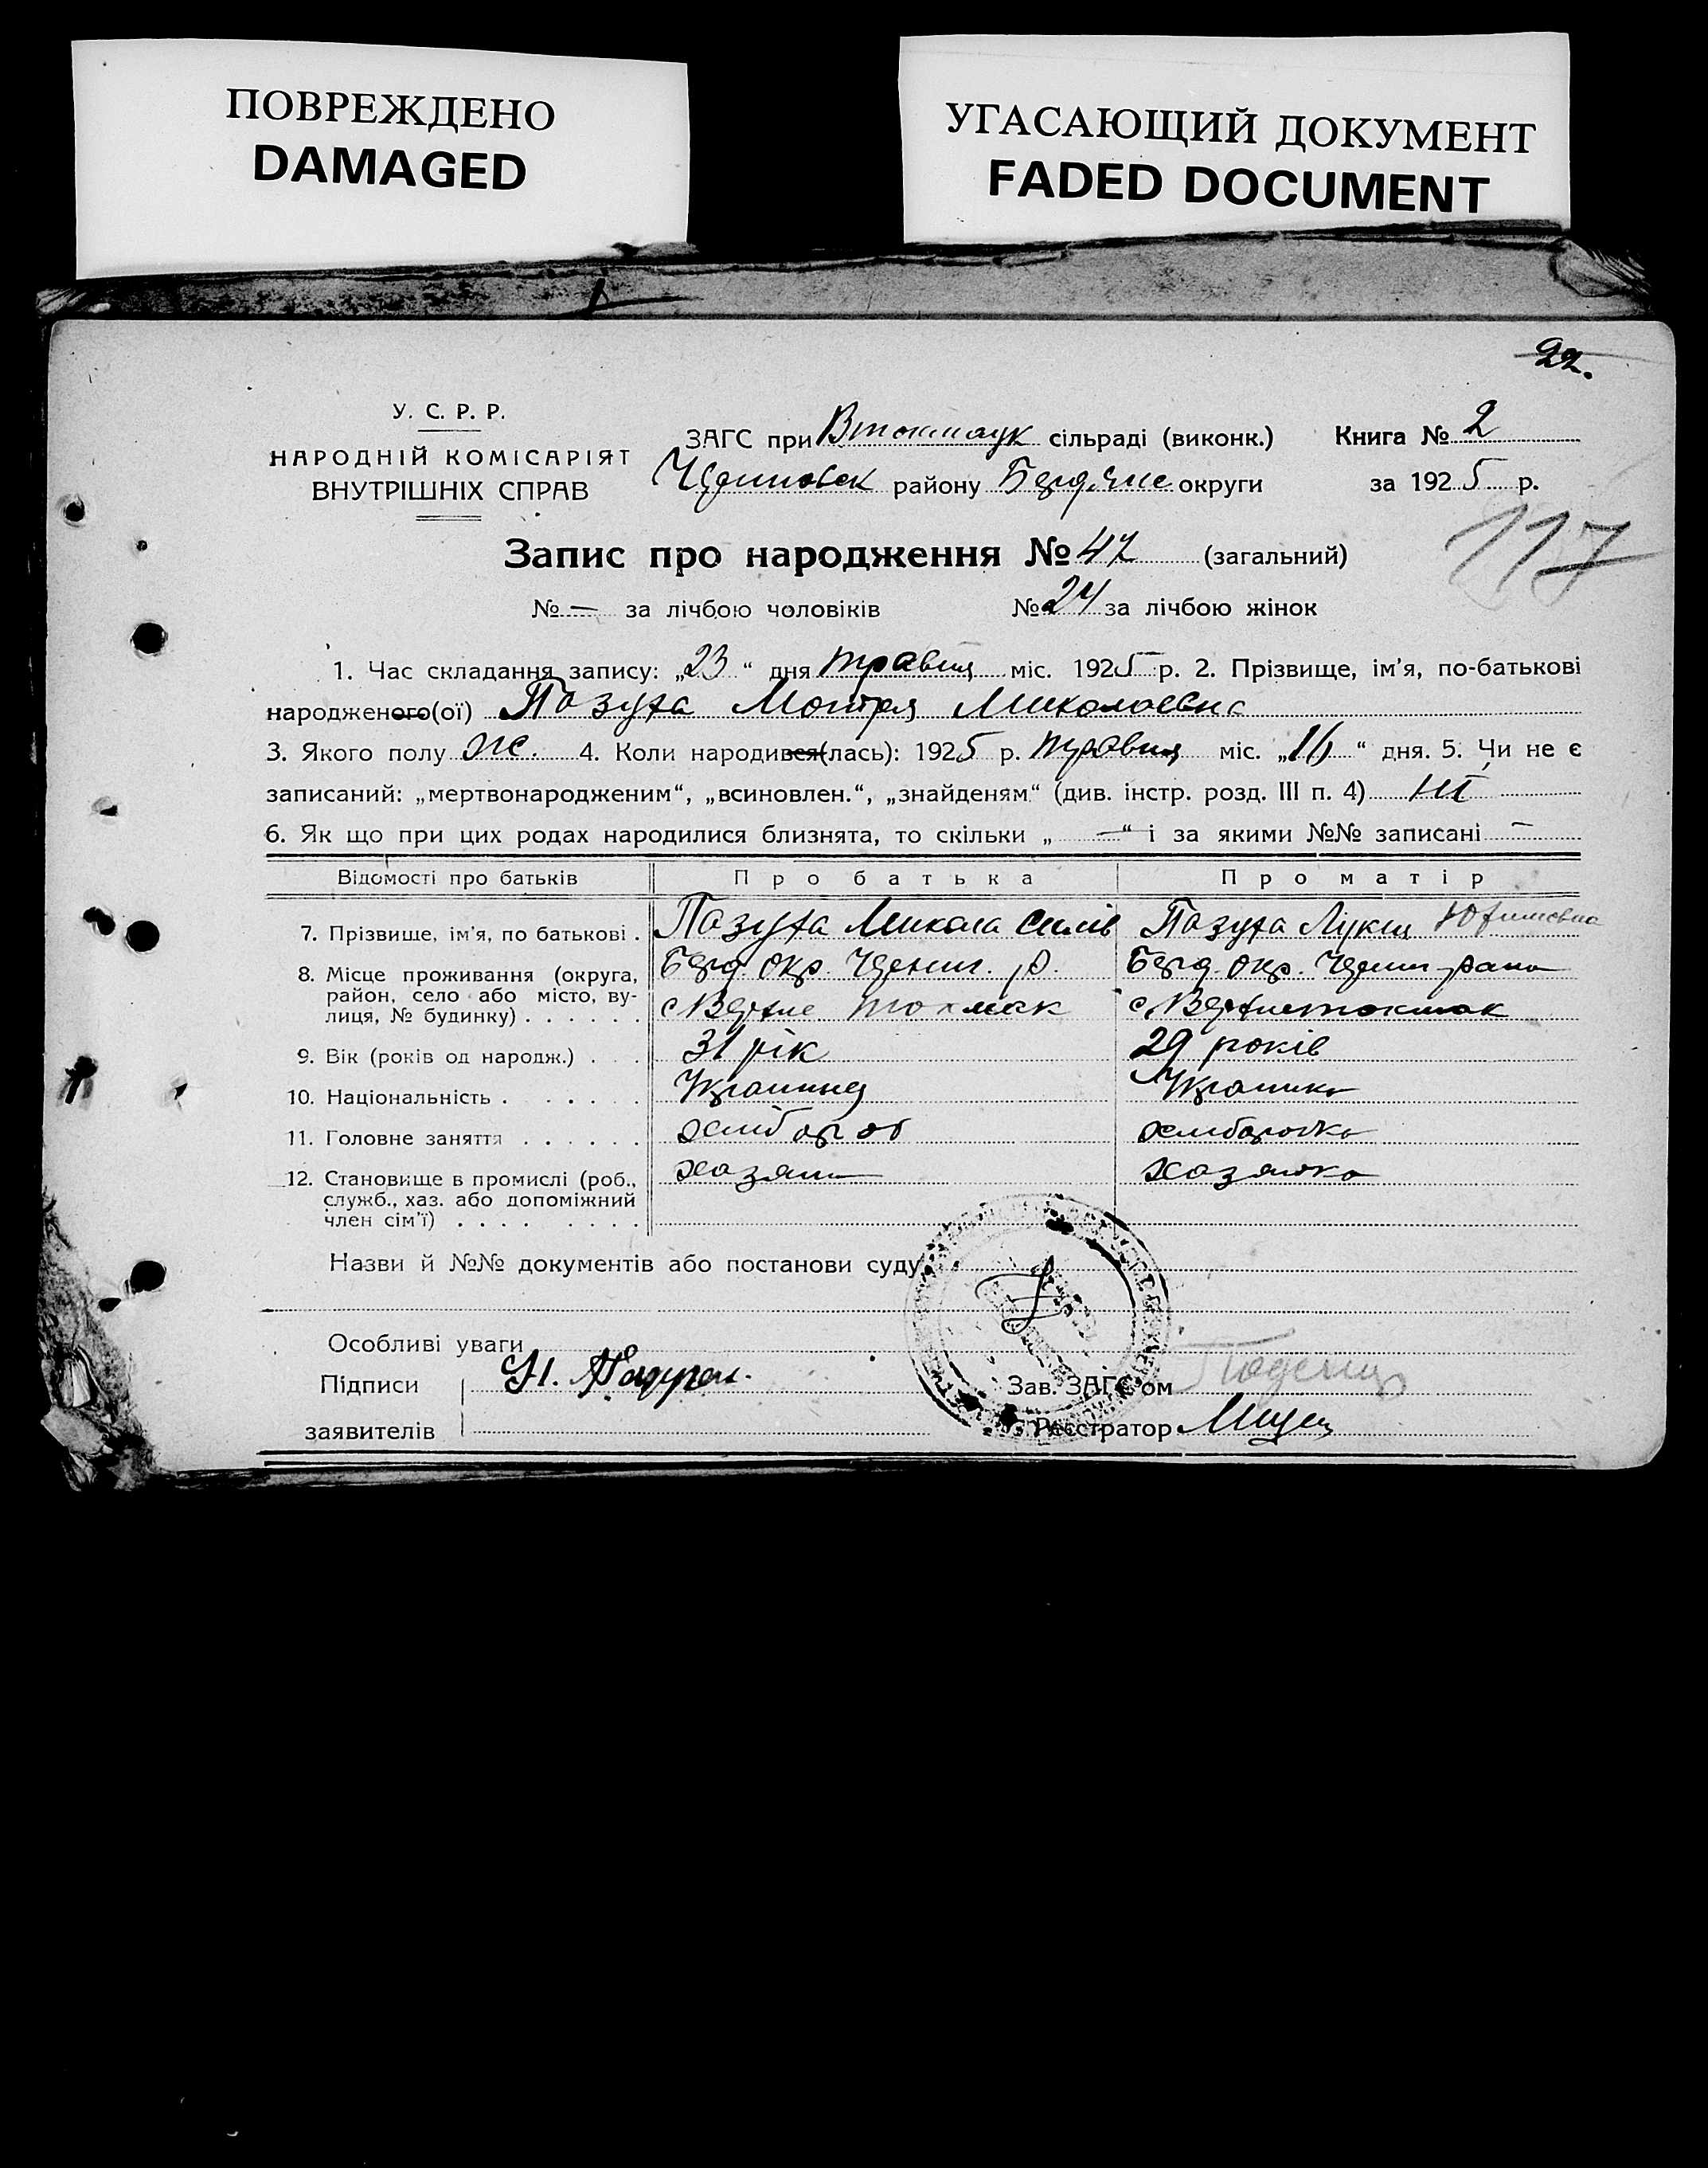 ПОВРЕЖДЕНО
DAMAGED
УГАСАЮЩИЙ ДОКУМЕНТ
FADED DOCUMENT
22.
У. С. Р. Р.
НАРОДНІЙ КОМІСАРІЯТ
ВНУТРІШНІХ СПРАВ
ЗАГС при Втокмацк сільраді (виконк.) Книга № 2
району Бердянс округи за 1925 р.
117
Запис про народження № 47 (загальний)
№ — за лічбою чоловіків № 24 за лічбою жінок
1. Час складання запису: „23“ дня травня міс. 1925 р. 2. Прізвище, ім'я, по-батькові
народженого(ої) Пазуха Мотря Миколаевна
3. Якого полу ж. 4. Коли народився(лась): 1925 р. травня міс. „16“ дня. 5. Чи не є
записаний: „мертвонародженим“, „всиновлен.“, „знайденям“ (див. інстр. розд. III п. 4) ні
6. Як що при цих родах народилися близнята, то скільки „—“ і за якими №№ записані —
Відомості про батьків Про батька Про матір
7. Прізвище, ім'я, по батькові . Пазуха Микола Пазуха Лукія Юхимовна
8. Місце проживання (округа, Берд. окр. р. Берд. окр.
район, село або місто, ву-
лиця, № будинку) . . . . . . с Верхне токмак с Верхнетокмак
9. Вік (років од народж.) . . 31 рік 29 років
10. Національність . . . . . Українец Українка
11. Головне заняття . . . . . . хлібороб хліборобка
12. Становище в промислі (роб., хазяин хазяйка
служб., хаз. або допоміжний
член сім'ї) . . . . . . . .
Назви й №№ документів або постанови суду
Особливі уваги
Підписи Н.
Зав. ЗАГС'ом
заявителів
Реєстратор